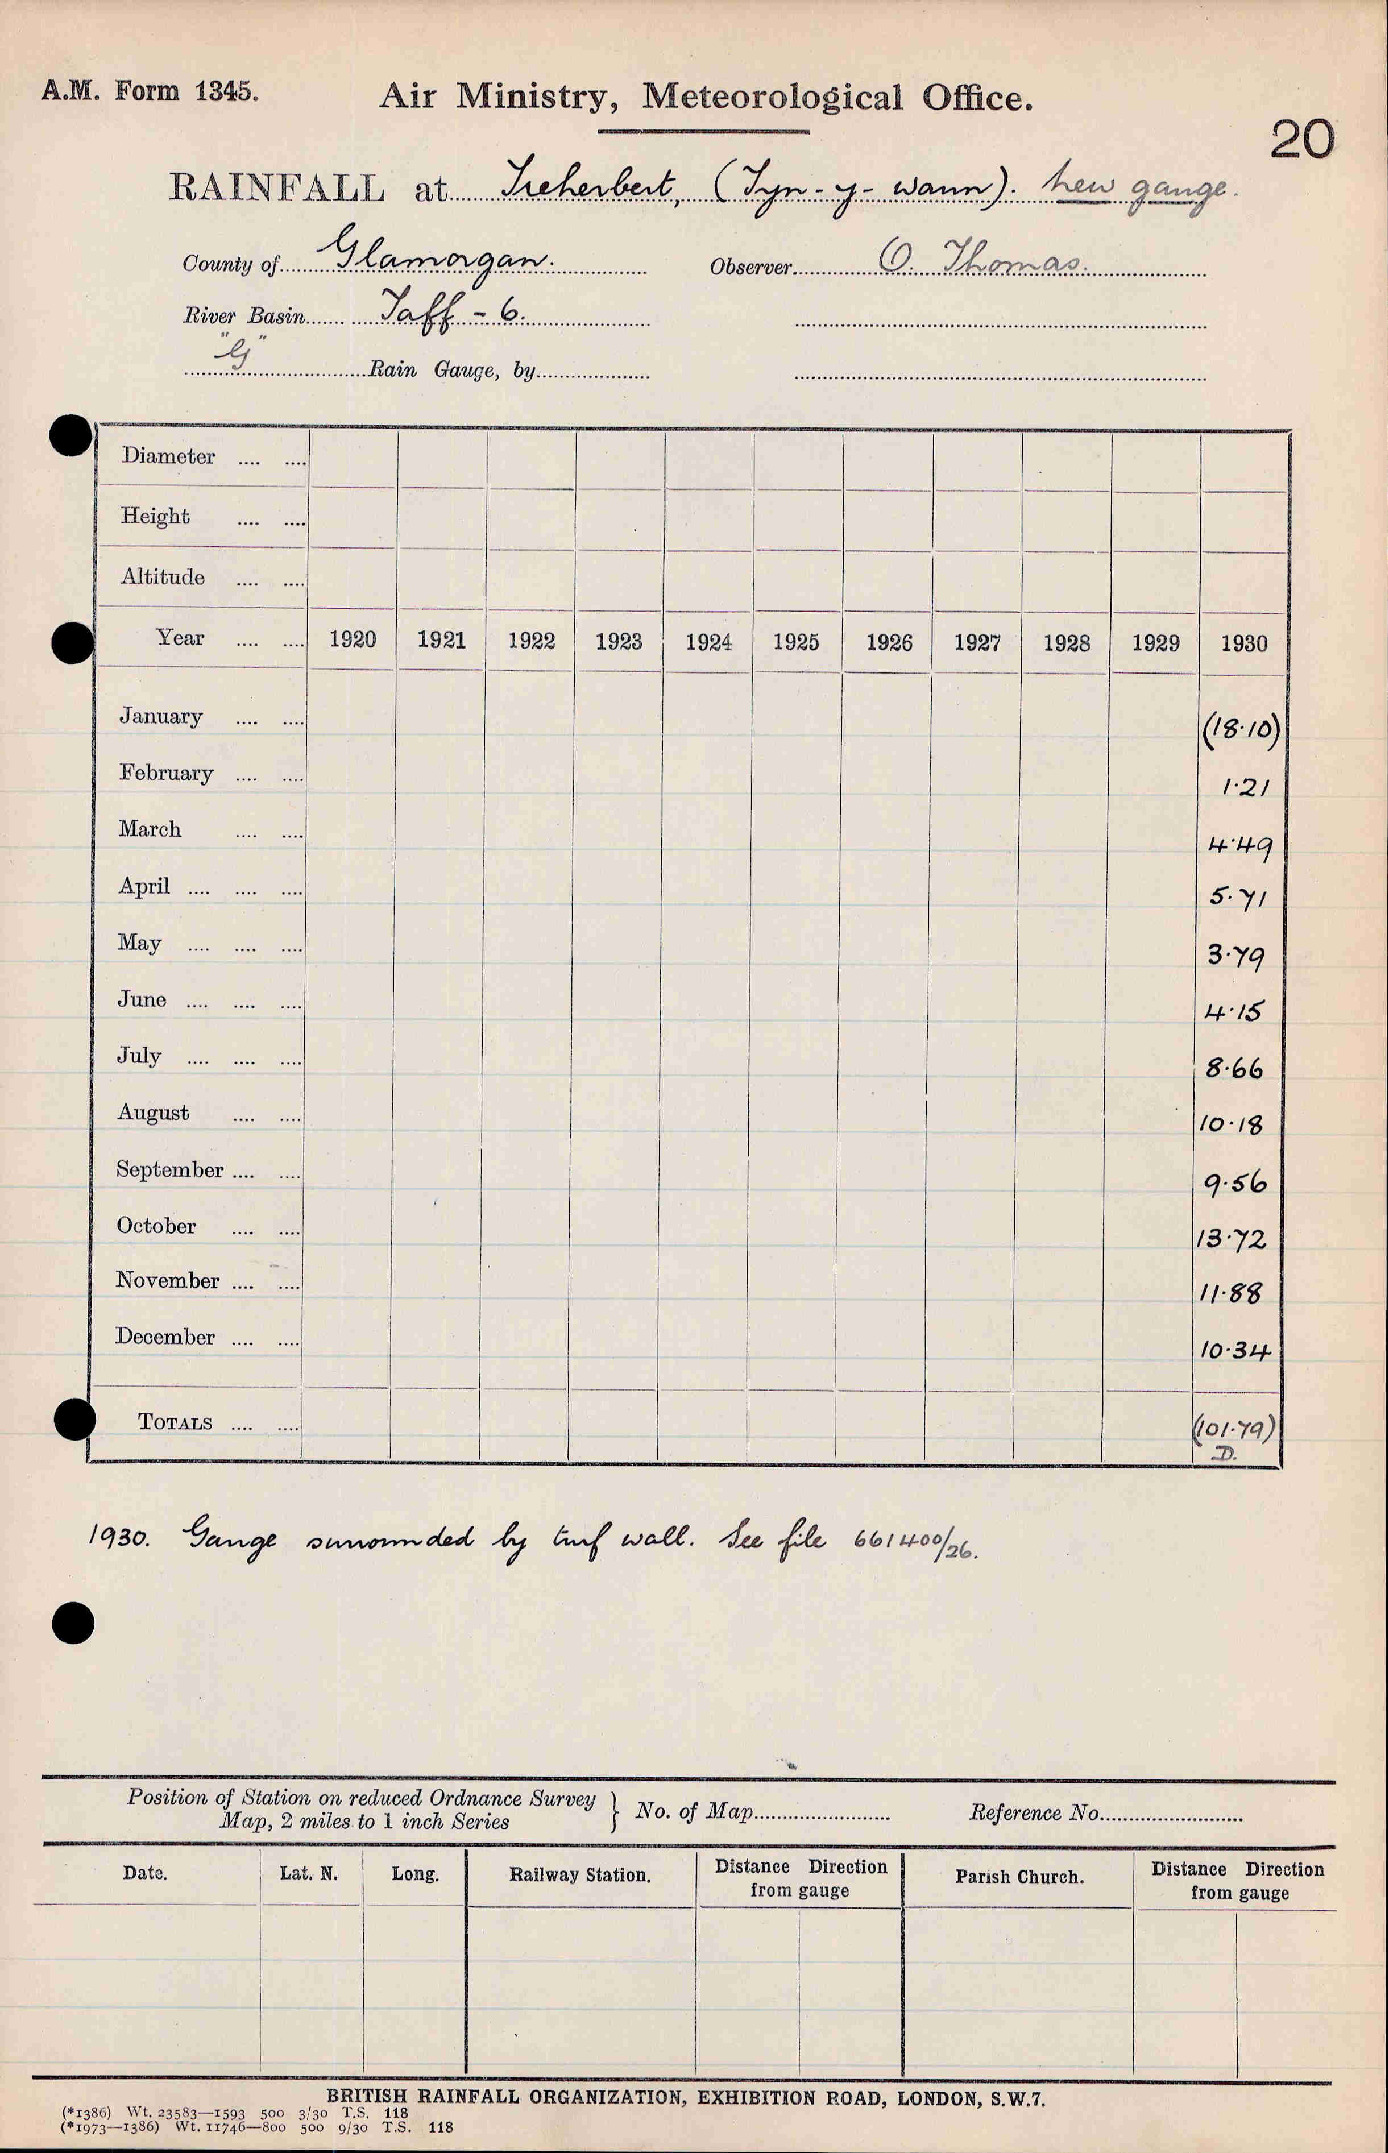 A.M. Form 1345.
Air Ministry, Meteorological Office.
20
RAINFALL at Treherbert, (Tyn-y-waun). New gauge.
County of Glamorgan. Observer O. Thomas.
River Basin Taff - 6.
"G" Rain Gauge, by
Diameter
Height
Altitude
Year 1920 1921 1922 1923 1924 1925 1926 1927 1928 1929 1930
January (18.10)
February 1.21
March 4.49
April 5.71
May 3.79
June 4.15
July 8.66
August 10.18
September 9.56
October 13.72
November 11.88
December 10.34
TOTALS (101.79)
D.
1930. Gauge surrounded by turf wall. See file 661400/26.
Position of Station on reduced Ordnance Survey
Map, 2 miles to 1 inch Series } No. of Map Reference No.
Date. Lat. N. Long. Railway Station. Distance Direction from gauge Parish Church. Distance Direction from gauge
BRITISH RAINFALL ORGANIZATION, EXHIBITION ROAD, LONDON, S.W.7.
(*1386) Wt. 23583—1593 500 3/30 T.S. 118
(*1973—1386) Wt. 11746—800 500 9/30 T.S. 118